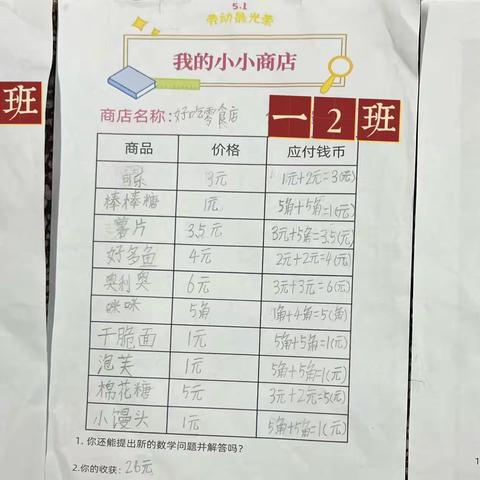 班
5.1
劳动最光荣
我的小小商店
商店名称:好吃零食店
一 2 班
商品 价格 应付钱币
可乐 3元 1元+2元=3(元)
棒棒糖 1元 5角+5角=1(元)
薯片 3.5元 3元+5角=3.5(元)
好多鱼 4元 2元+2元=4(元)
奥利奥 6元 3元+3元=6(元)
咪咪 5角 1角+4角=5(角)
干脆面 1元 5角+5角=1(元)
泡芙 1元 5角+5角=1(元)
棉花糖 5元 3元+2元=5(元)
小馒头 1元 5角+5角=1(元)
1. 你还能提出新的数学问题并解答吗?
2.你的收获: 26元